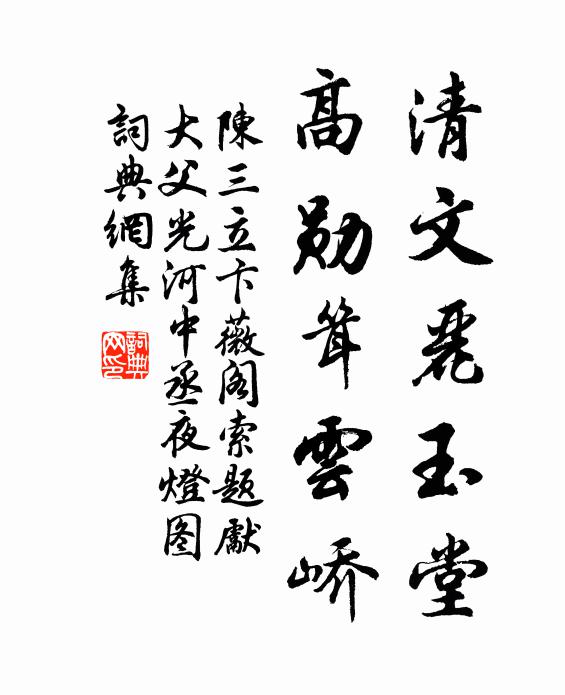 清文麗玉堂
高勋耸雲峤
陳三立卞薇阁索題獻
大父光河中丞夜燈图
詞典網集
詞典網印